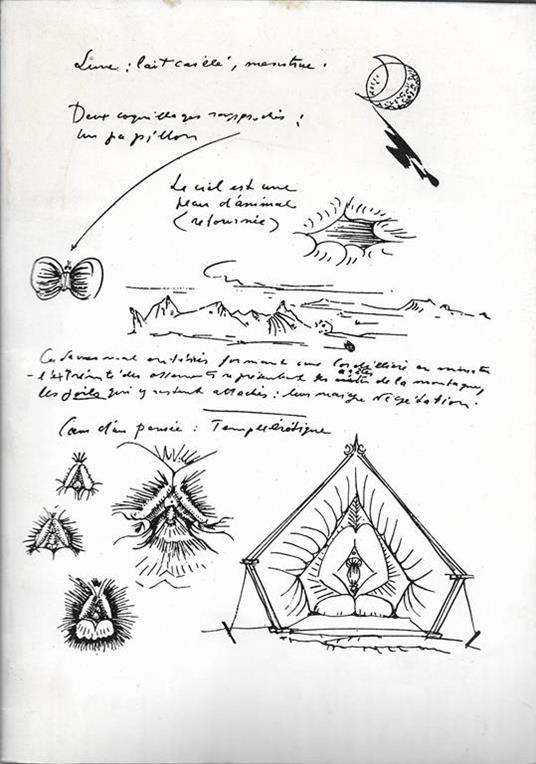 Lune : lait caillé, menstrue.
Deux coquillages rapprochés :
un papillon
Le ciel est une
peau d'animal
(retournée)
formant une Cordillière en
l'extrémité des ossements représentant les arêtes de la montagne,
les poils qui y restent attachés : leur maigre végétation.
Cœur d'une pensée : Temple érotique